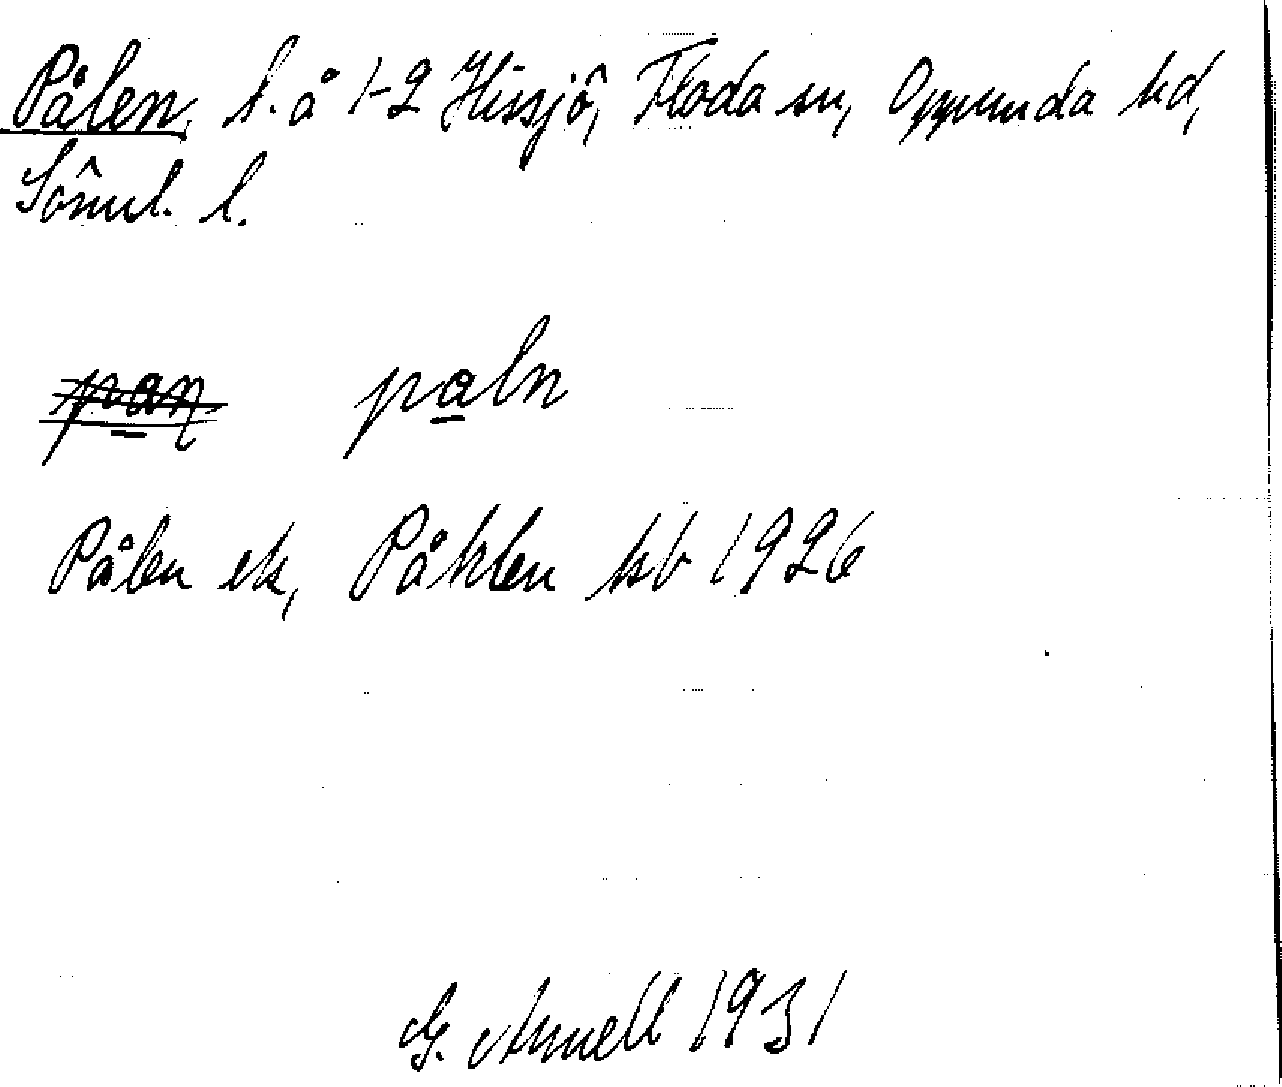 Pålen, l. å 1-2 Hissjö, Floda sn, Oppunda hd,
Söml. l.
paln
Pålen ek, Påhlen kb 1926
G. Arnell 1931